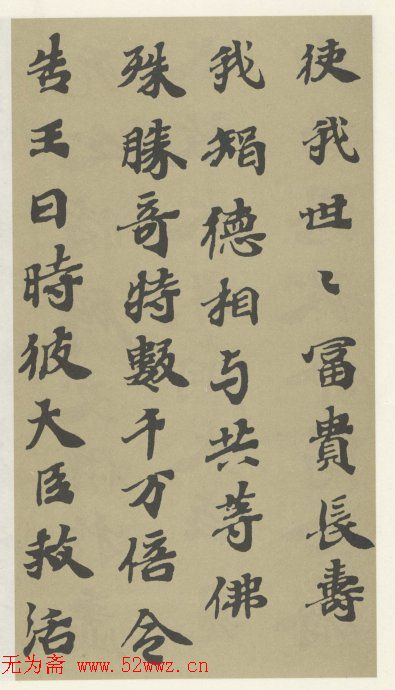 使我世〻冨貴長壽
我智德相与共等佛
殊勝奇特數千万倍令
告王曰時彼大臣救活
无为斋 www.52wwz.cn